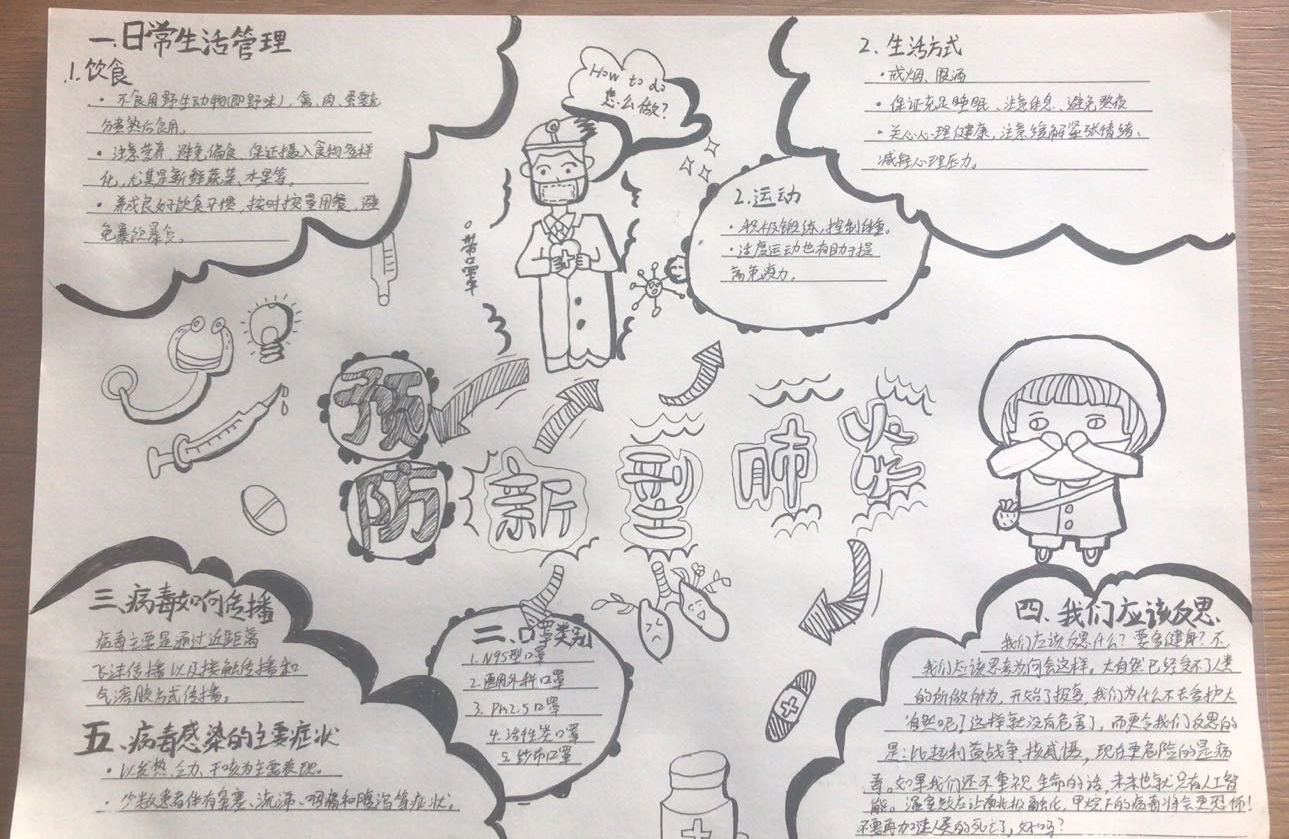 一.日常生活管理
1.饮食
• 不食用野生动物(即野味),禽、肉、蛋要充
分煮熟后食用。
• 注意营养,避免偏食,保证摄入食物多样
化,尤其是新鲜蔬菜、水果等。
• 养成良好饮食习惯,按时按量用餐,避
免暴饮暴食。
How to do
怎么做?
2.生活方式
• 戒烟、限酒
• 保证充足睡眠、注意休息、避免熬夜
• 关心心理健康,注意缓解紧张情绪、
减轻心理压力。
2.运动
• 积极锻炼,控制体重。
• 适度运动也有助于提
高免疫力。
带口罩
预防新型肺炎
三、病毒如何传播
病毒主要是通过近距离
飞沫传播以及接触传播和
气溶胶方式传播。
五、病毒感染的主要症状
• 以发热、乏力、干咳为主要表现。
• 少数患者伴有鼻塞、流涕、咽痛和腹泻等症状。
二、口罩类别
1.N95型口罩
2.医用外科口罩
3.Pm2.5口罩
4.活性炭口罩
5.纱布口罩
四、我们应该反思
我们应该反思什么?要多健身?不
我们应该思考为何会这样。大自然已经受不了人类
的所做所为,开始了报复,我们为什么不去爱护大
自然呢!这样就没有危害了,而更令我们反思的
是:比起利益战争,核威慑,现在更危险的是病
毒。如果我们还不重视生命的话,未来也就只有人工智
能。温室效应让南北极融化,甲烷下的病毒将会更恐怖!
不要再加速人类的死亡了,好吗?